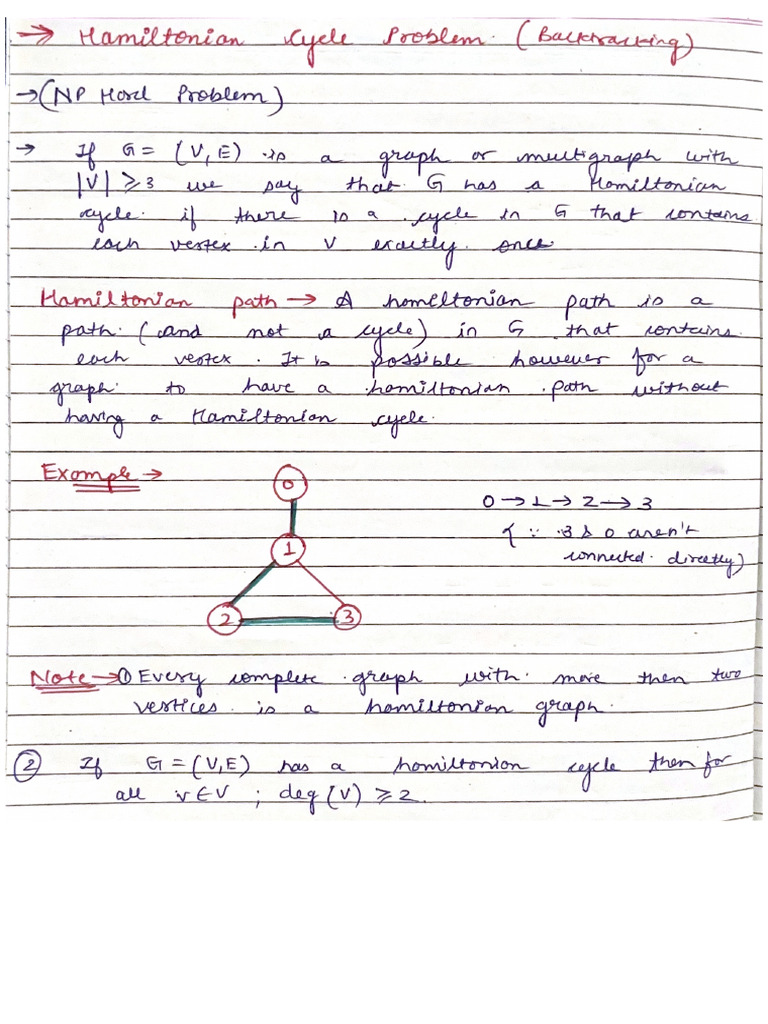 → Hamiltonian Cycle Problem. (Backtracking)
→ (NP Hard Problem)
→ If G = (V, E) is a graph or multigraph with
|V| ≥ 3 we say that G has a Hamiltonian
cycle if there is a cycle in G that contains
each vertex in V exactly once.
Hamiltonian path → A hamiltonian path is a
path (and not a cycle) in G that contains
each vertex. It is possible however for a
graph to have a hamiltonian path without
having a Hamiltonian cycle.
Example →
0
0 → 1 → 2 → 3
{ ∵ 3 & 0 aren't
1
connected directly)
2 3
Note → ① Every complete graph with more then two
vertices is a hamiltonian graph.
② If G = (V, E) has a hamiltonian cycle then for
all v ∈ V ; deg (V) ≥ 2.